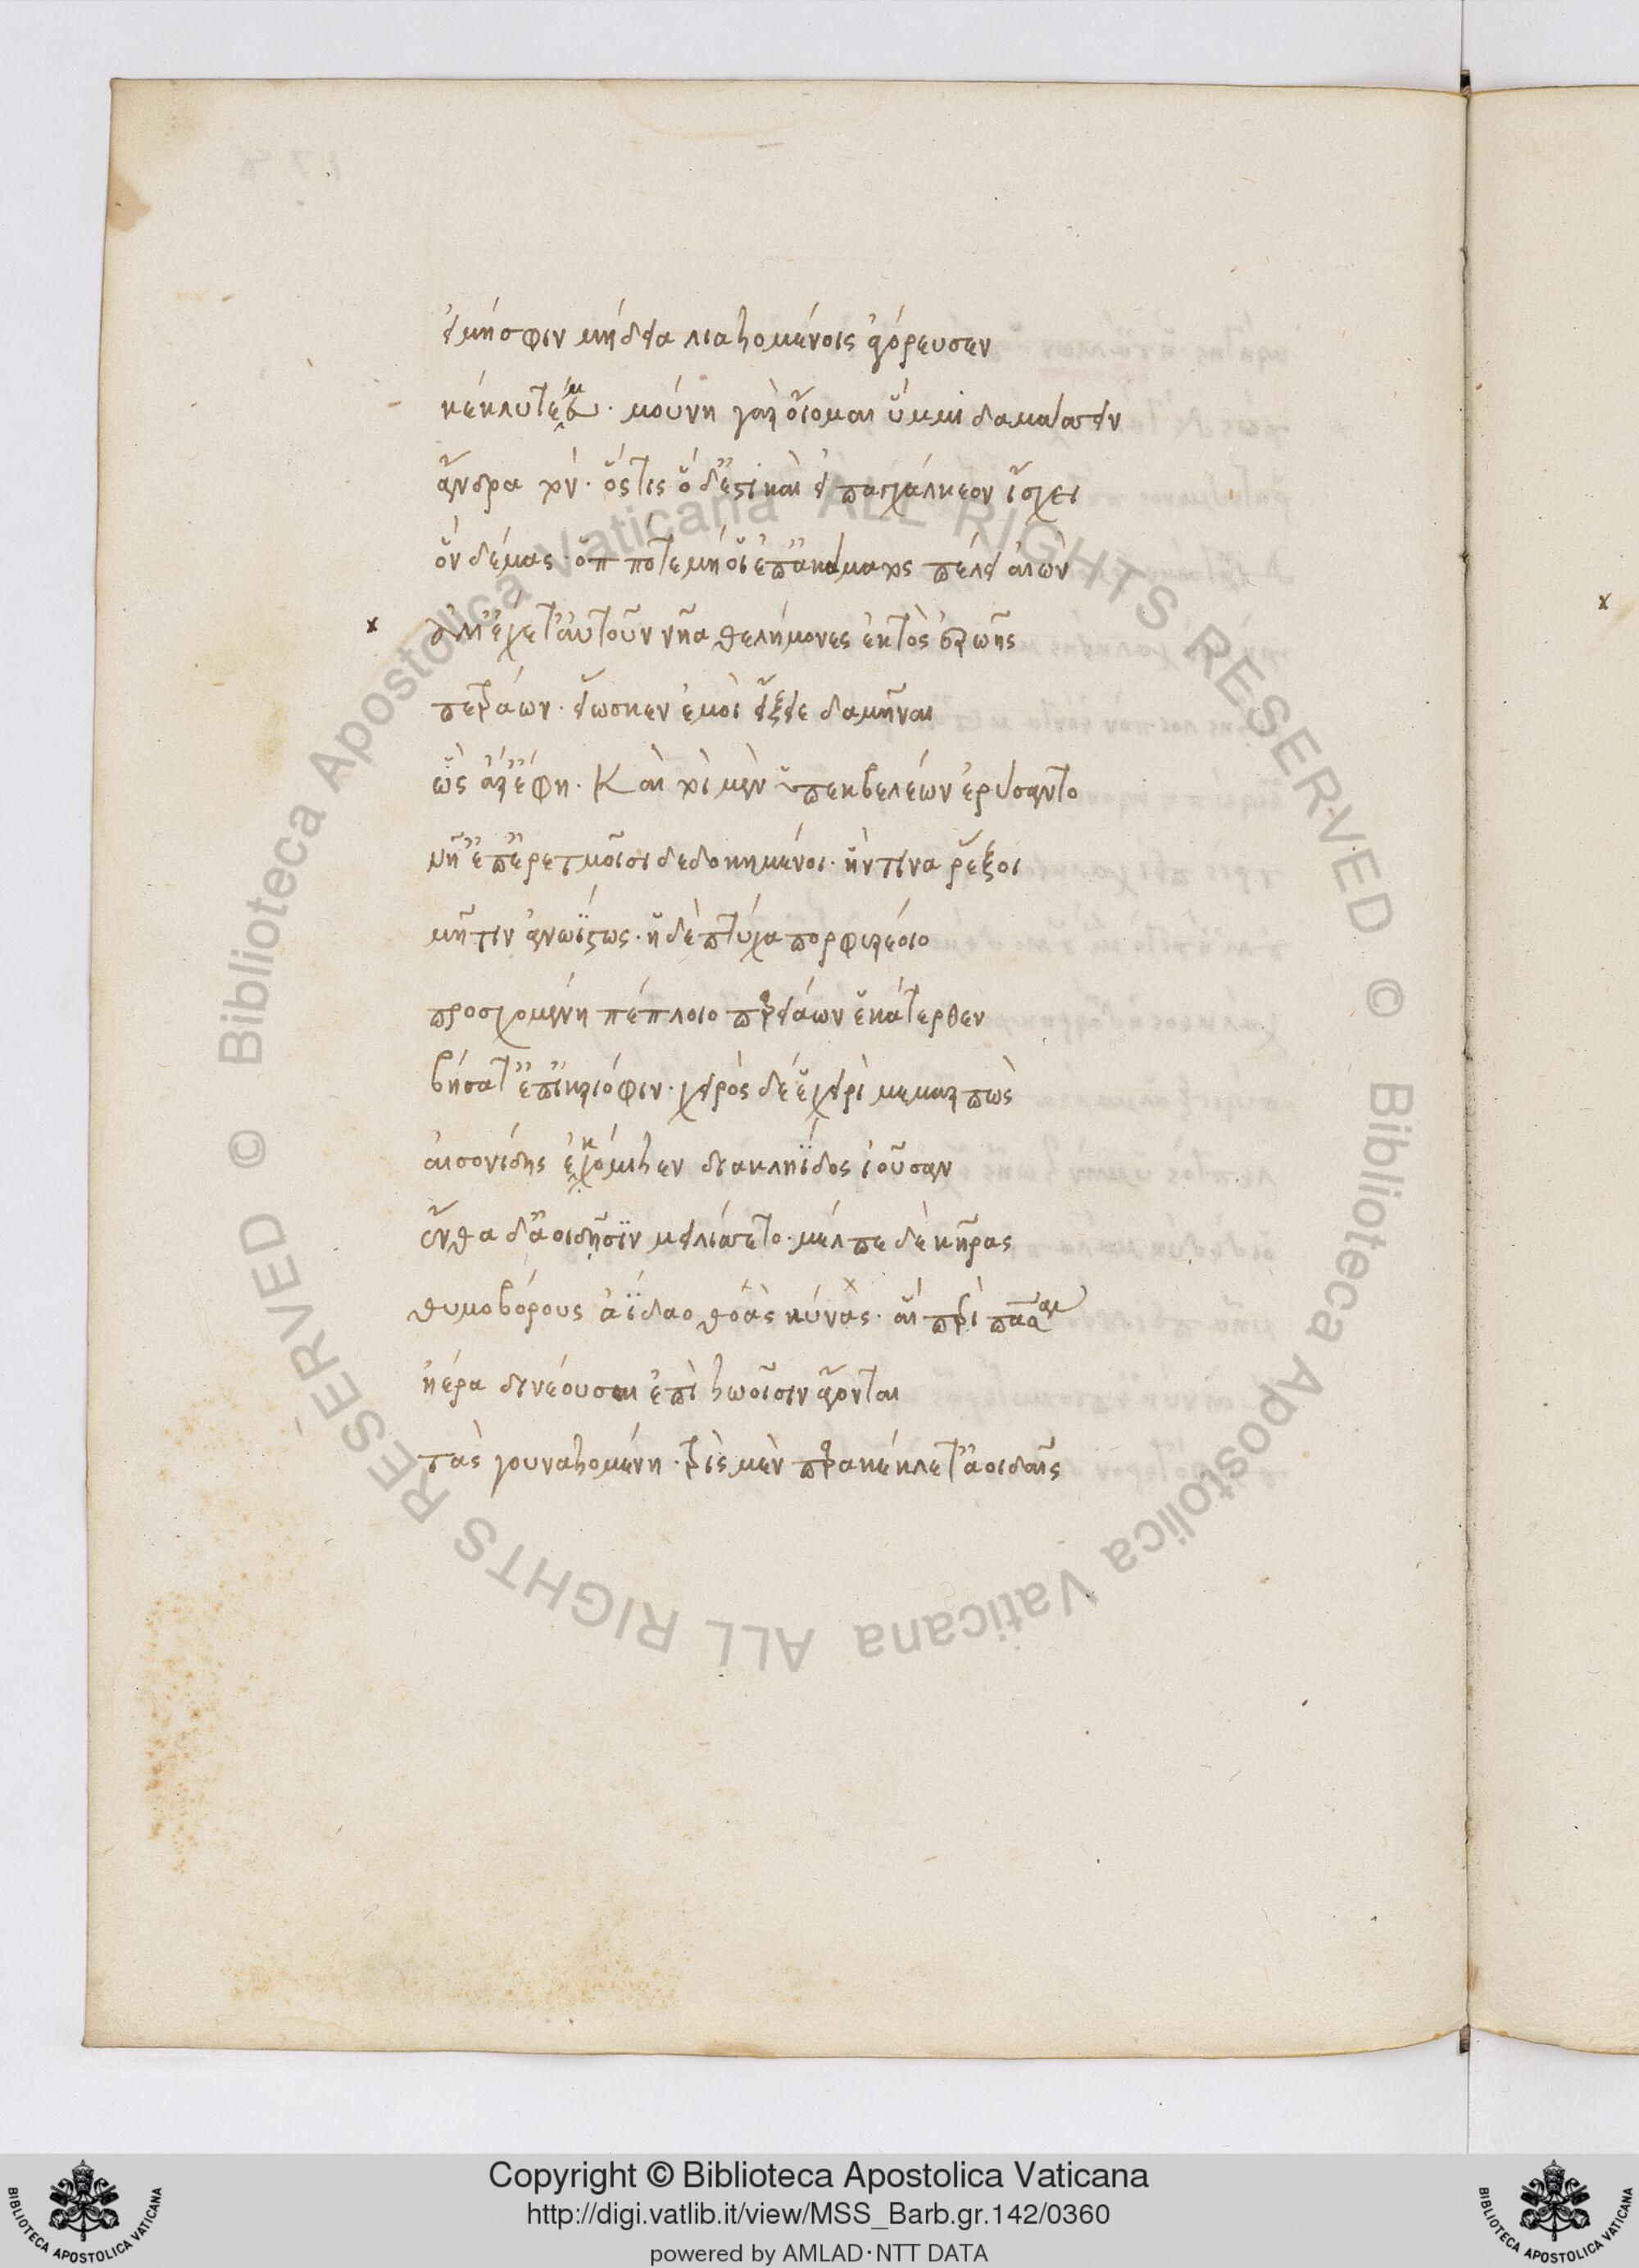 εἰ μή σφιν μήδεια λιαζομένοις ἀγόρευσεν
κέκλυτέ μευ· μούνη γὰρ οἴομαι ὔμμι δαμάσσειν
ἄνδρα τὸν· ὅς τις ὅ δ᾽ ἐστὶ καὶ εἰ παγχάλκεον ἴσχει
ὃν δέμας· ὁπ πότε μή οἱ ἐπ᾽ ἀκάματος πέλει αἰών
ἀλλ᾽ ἔχετ᾽ αὐτοῦν νῆα θελήμονες ἐκτὸς ἐρωῆς
πετράων· εἵωσκεν ἐμοὶ εἴξειε δαμῆναι
ὣς ἄρ᾽ ἔφη· Καὶ τοὶ μὲν ὑπεκβελέων ἐρύσαντο
νῆ᾽ ἐπ᾽ ἐρετμοῖσι δεδοκημένοι· ἥν τινα ῥέξοι
μῆτιν ἀνωΐστως· ἡ δὲ πτύχα πορφυρέοιο
προσχομένη πέπλοιο παρειάων ἑκάτερθεν
βήσατ᾽ ἐπ᾽ ἰκριόφιν· χειρὸς δέ ἑ χειρὶ μεμαρπὼς
αἰσονίδης ἐκόμιζεν διακληΐδος ἰοῦσαν
ἔνθα δ᾽ ἀοιδῇσϊν μειλίσσετο· μέλπε δὲ κῆρας
θυμοβόρους ἀΐδαο θοὰς κύνὰς· αἳ περὶ πᾶσαν
ἠέρα δινέουσαι ἐπὶ ζωοῖσιν ἄγονται
τὰς γουναζομένη· τρὶς μὲν παρακέκλετ᾽ ἀοιδαῖς
Copyright © Biblioteca Apostolica Vaticana
http://digi.vatlib.it/view/MSS_Barb.gr.142/0360
powered by AMLAD·NTT DATA